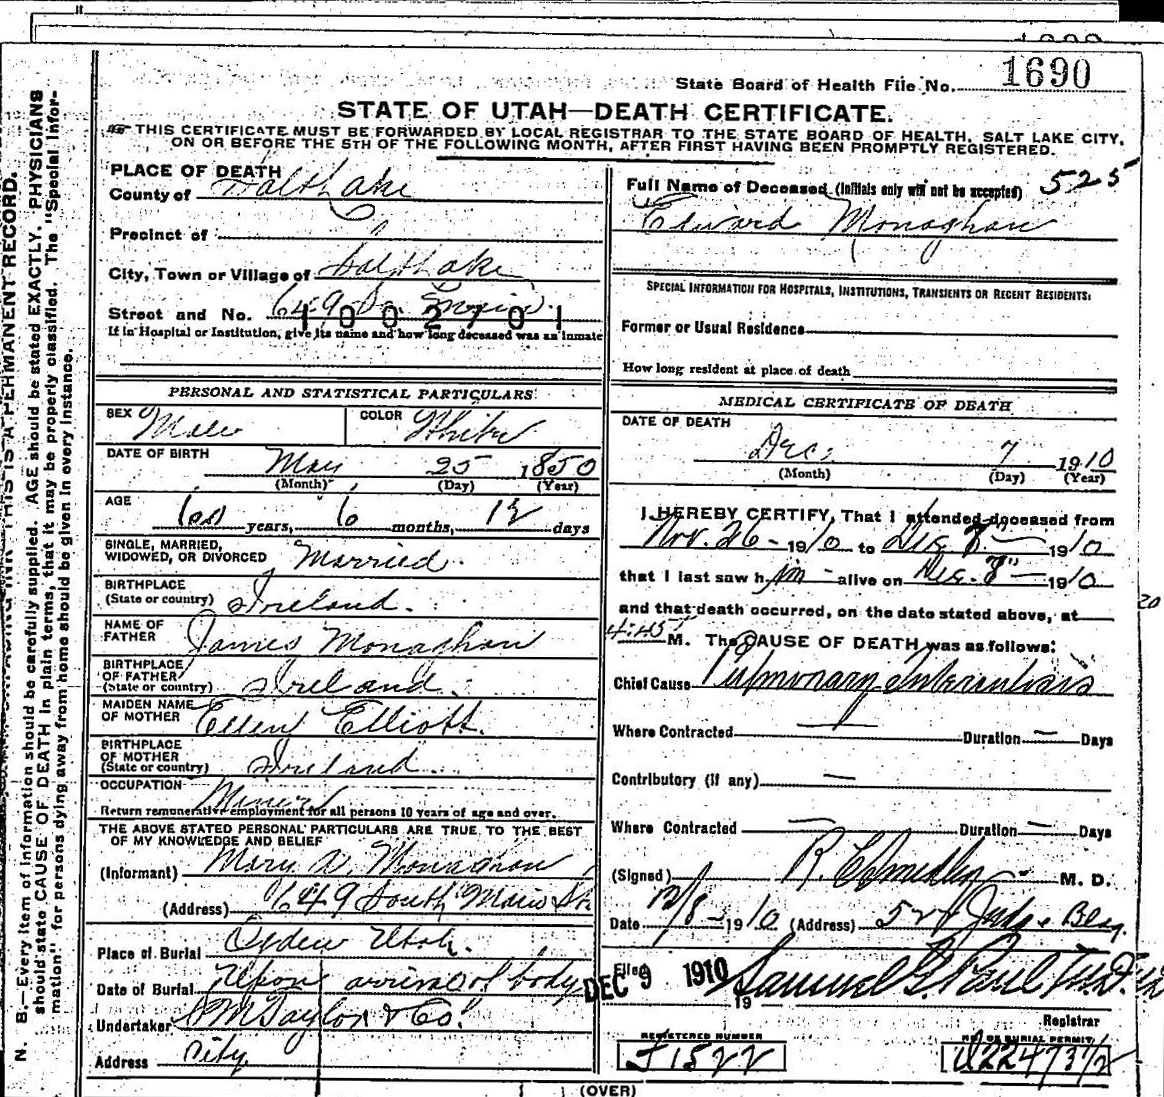 State Board of Health File No. 1690
STATE OF UTAH—DEATH CERTIFICATE.
THIS CERTIFICATE MUST BE FORWARDED BY LOCAL REGISTRAR TO THE STATE BOARD OF HEALTH, SALT LAKE CITY,
ON OR BEFORE THE 5TH OF THE FOLLOWING MONTH, AFTER FIRST HAVING BEEN PROMPTLY REGISTERED.
N. B.—Every item of information should be carefully supplied. AGE should be stated EXACTLY. PHYSICIANS
should state CAUSE OF DEATH in plain terms, that it may be properly classified. The "Special Infor-
mation" for persons dying away from home should be given in every instance.
THIS IS A PERMANENT RECORD.
PLACE OF DEATH
County of Salt Lake
Precinct of
City, Town or Village of Salt Lake
Street and No. 649 So Main
1002701
If in Hospital or Institution, give its name and how long deceased was an inmate
PERSONAL AND STATISTICAL PARTICULARS
SEX Male COLOR White
DATE OF BIRTH May 25 1850
(Month) (Day) (Year)
AGE 60 years, 6 months, 12 days
SINGLE, MARRIED,
WIDOWED, OR DIVORCED Married
BIRTHPLACE
(State or country) Ireland.
NAME OF
FATHER James Monaghan
BIRTHPLACE
OF FATHER
(State or country) Ireland.
MAIDEN NAME
OF MOTHER Ellen Elliott.
BIRTHPLACE
OF MOTHER
(State or country) Ireland.
OCCUPATION Miner
Return remunerative employment for all persons 10 years of age and over.
THE ABOVE STATED PERSONAL PARTICULARS ARE TRUE TO THE BEST
OF MY KNOWLEDGE AND BELIEF
(Informant) Mary A. Monaghan
(Address) 649 South Main St
Place of Burial Ogden Utah.
Date of Burial Upon arrival of body
Undertaker S M Taylor & Co.
Address City
Full Name of Deceased (Initials only will not be accepted) 525
Edward Monaghan
SPECIAL INFORMATION FOR HOSPITALS, INSTITUTIONS, TRANSIENTS OR RECENT RESIDENTS:
Former or Usual Residence
How long resident at place of death
MEDICAL CERTIFICATE OF DEATH
DATE OF DEATH
Dec. 7 1910
(Month) (Day) (Year)
I HEREBY CERTIFY, That I attended deceased from
Nov. 26 - 1910 to Dec 8" 1910
that I last saw him alive on Dec. 8" 1910
20
and that death occurred, on the date stated above, at
4:45 M. The CAUSE OF DEATH was as follows:
Chief Cause Pulmonary Tuberculosis
Where Contracted — Duration — Days
Contributory (if any) —
Where Contracted — Duration — Days
(Signed) M. D.
Date 12/8 - 1910 (Address)
Filed DEC 9 1910 19 Samuel G. Paul M.D.
Registrar
REGISTERED NUMBER
J1522
NO. OF BURIAL PERMIT
(OVER)